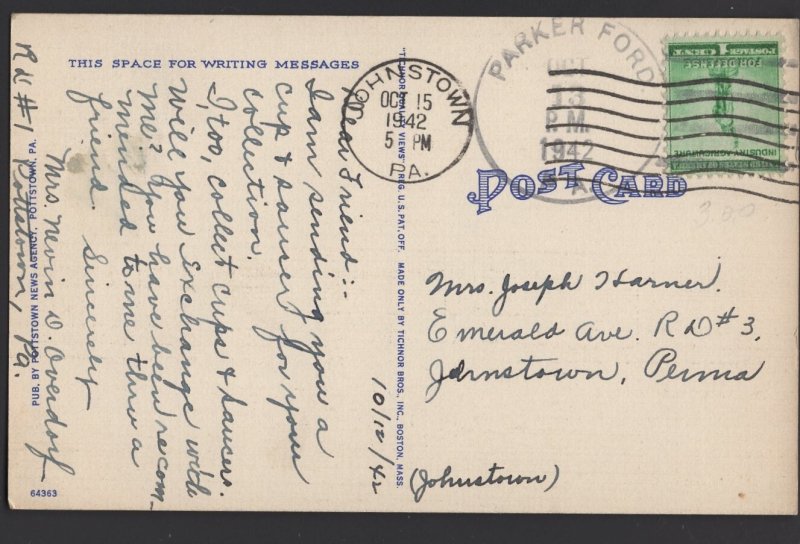 THIS SPACE FOR WRITING MESSAGES
Dear Friend:-
I am sending you a
cup & saucer for your
collection.
I, too, collect cups & saucers.
Will you exchange with
me? You have been recom-
mended to me thru a
friend. Sincerely
Mrs. Nevin D. Overdorf
RD #1 Pottstown, Pa.
10/12/42
PUB. BY POTTSTOWN NEWS AGENCY, POTTSTOWN, PA.
64363
"TICHNOR QUALITY VIEWS" REG. U.S. PAT. OFF. MADE ONLY BY TICHNOR BROS., INC., BOSTON, MASS.
JOHNSTOWN
OCT 15
1942
5 PM
PA.
PARKER FORD
OCT
13
P.M.
1942
PA.
1 CENT
U.S. POSTAGE
FOR DEFENSE
INDUSTRY AGRICULTURE
POST CARD
300
Mrs. Joseph Harner.
Emerald Ave. RD #3.
Jhrnstown, Penna
(Johnstown)